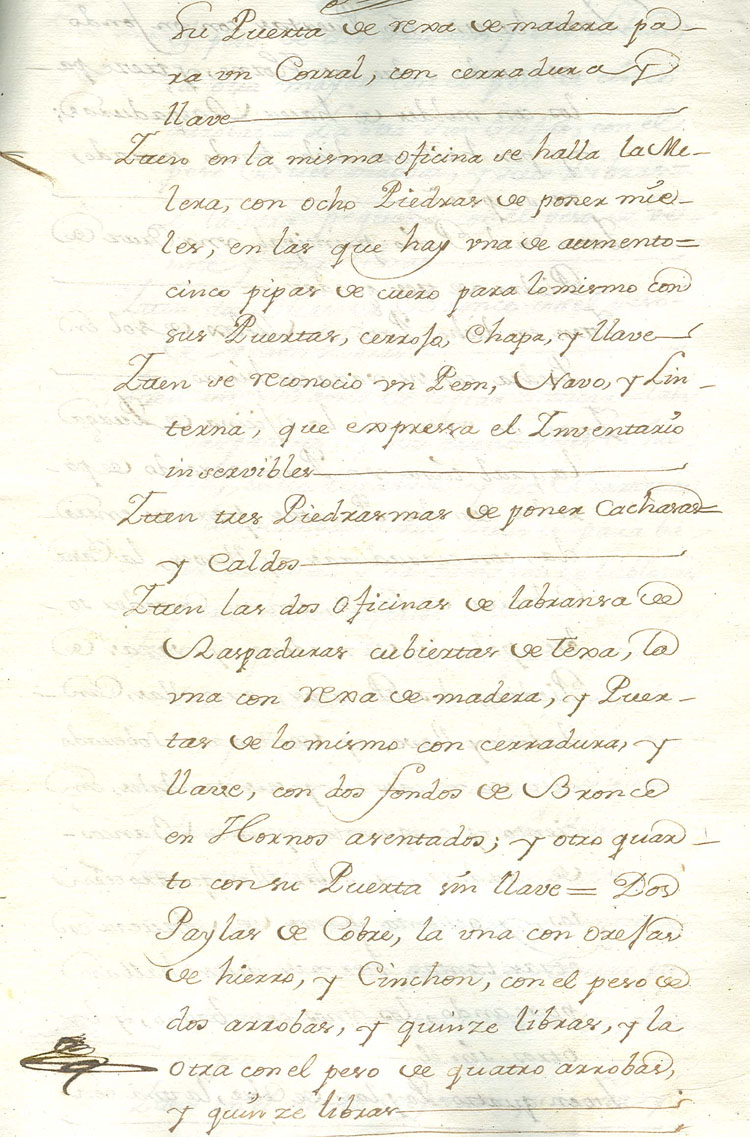 su Puerta de rexa de madera pa-
ra vn Corral, con cerradura y
llave
Ytten en la misma oficina se halla la Me-
lera, con ocho Piedras de poner mie-
les, en las que hay vna de aumento=
cinco pipas de cuero para lo mismo con
sus Puertas, cerrojo, Chapa, y llave
Ytten se reconocio vn Peon, Navo, y Lin-
terna, que expressa el Inventario
inservibles
Ytten tres Piedras mas de poner Cachasas=
y Caldos
Ytten las dos oficinas de labransa de
Raspaduras cubiertas de texa, la
vna con rexa de madera, y Puer-
tas de lo mismo con cerradura, y
llave, con dos fondos de Bronce
en Hornos asentados; y otro quar-
to con su Puerta sin llave = Dos
Paylas de Cobre, la vna con orejas
de hierro, y Cinchon, con el peso de
dos arrobas, y quinze libras, y la
otra con el peso de quatro arrobas,
y quinze libras